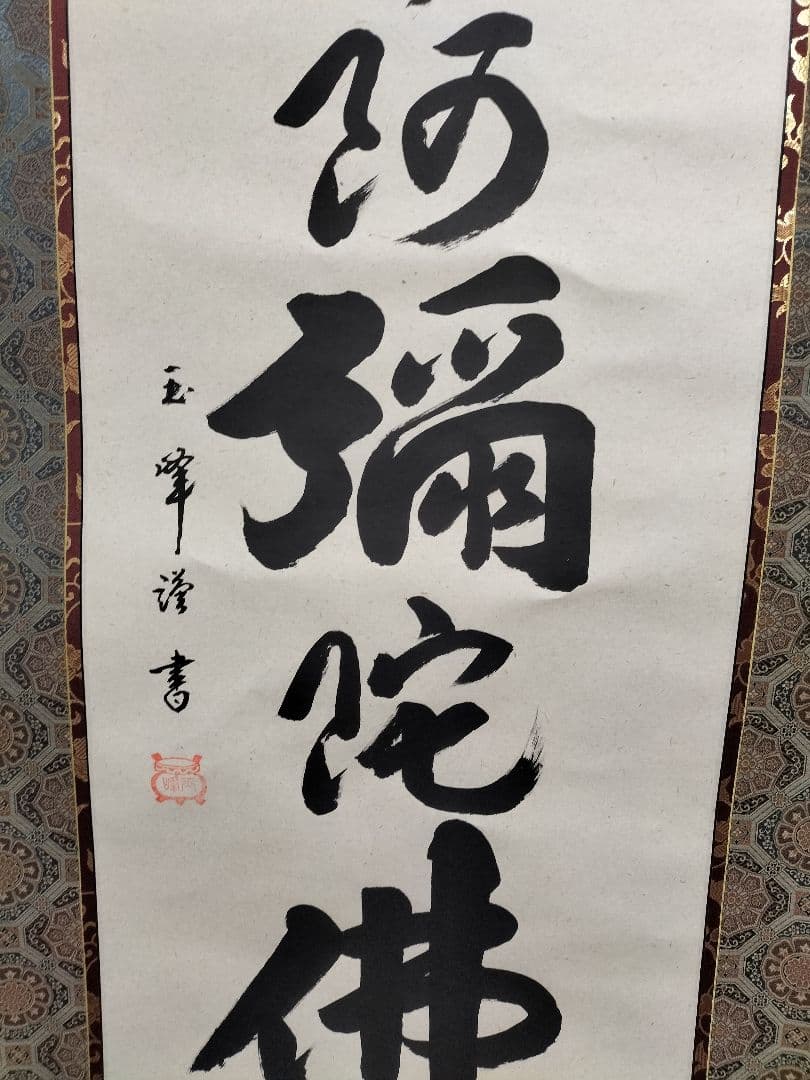 阿彌陀佛
玉峰謹書